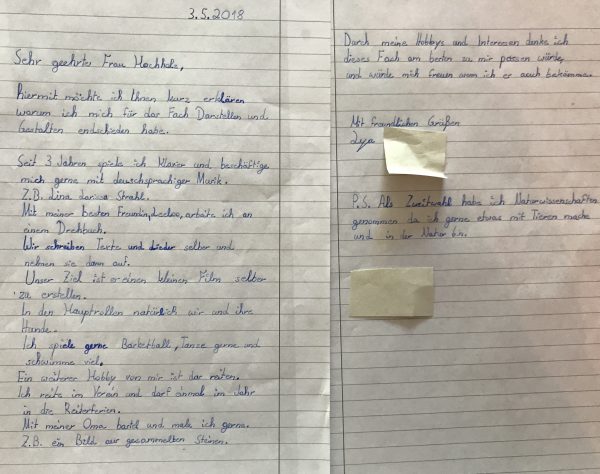 3.5.2018
Sehr geehrte Frau Hochholz,
hiermit möchte ich Ihnen kurz erklären
warum ich mich für das Fach Darstellen und
Gestalten entschieden habe.
Seit 3 Jahren spiele ich Klavier und beschäftige
mich gerne mit deutschsprachiger Musik.
Z.B. Lina Larissa Strahl.
Mit meiner besten Freundin, Leeloo, arbeite ich an
einem Drehbuch.
Wir schreiben Texte und Lieder selber und
nehmen sie dann auf.
Unser Ziel ist es einen kleinen Film selber
zu erstellen.
In den Hauptrollen natürlich wir und ihre
Hunde.
Ich spiele gerne Basketball, Tanze gerne und
schwimme viel.
Ein weiterer Hobby von mir ist das reiten.
Ich reite im Verein und darf einmal im Jahr
in die Reiterferien.
Mit meiner Oma bastel und male ich gerne.
Z.B. ein Bild aus gesammelten Steinen.
Durch meine Hobbys und Interessen denke ich
dieses Fach am besten zu mir passen würde,
und würde mich freuen wenn ich es auch bekomme.
Mit freundlichen Grüßen
P.S. Als Zweitwahl habe ich Naturwissenschaften
genommen da ich gerne etwas mit Tieren mache
und in der Natur bin.